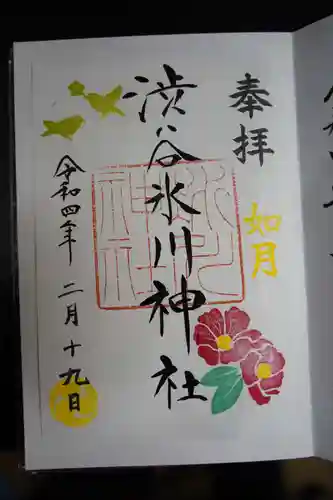 奉拝
如月
渋谷氷川神社
氷川
神社
令和四年
二月十九日